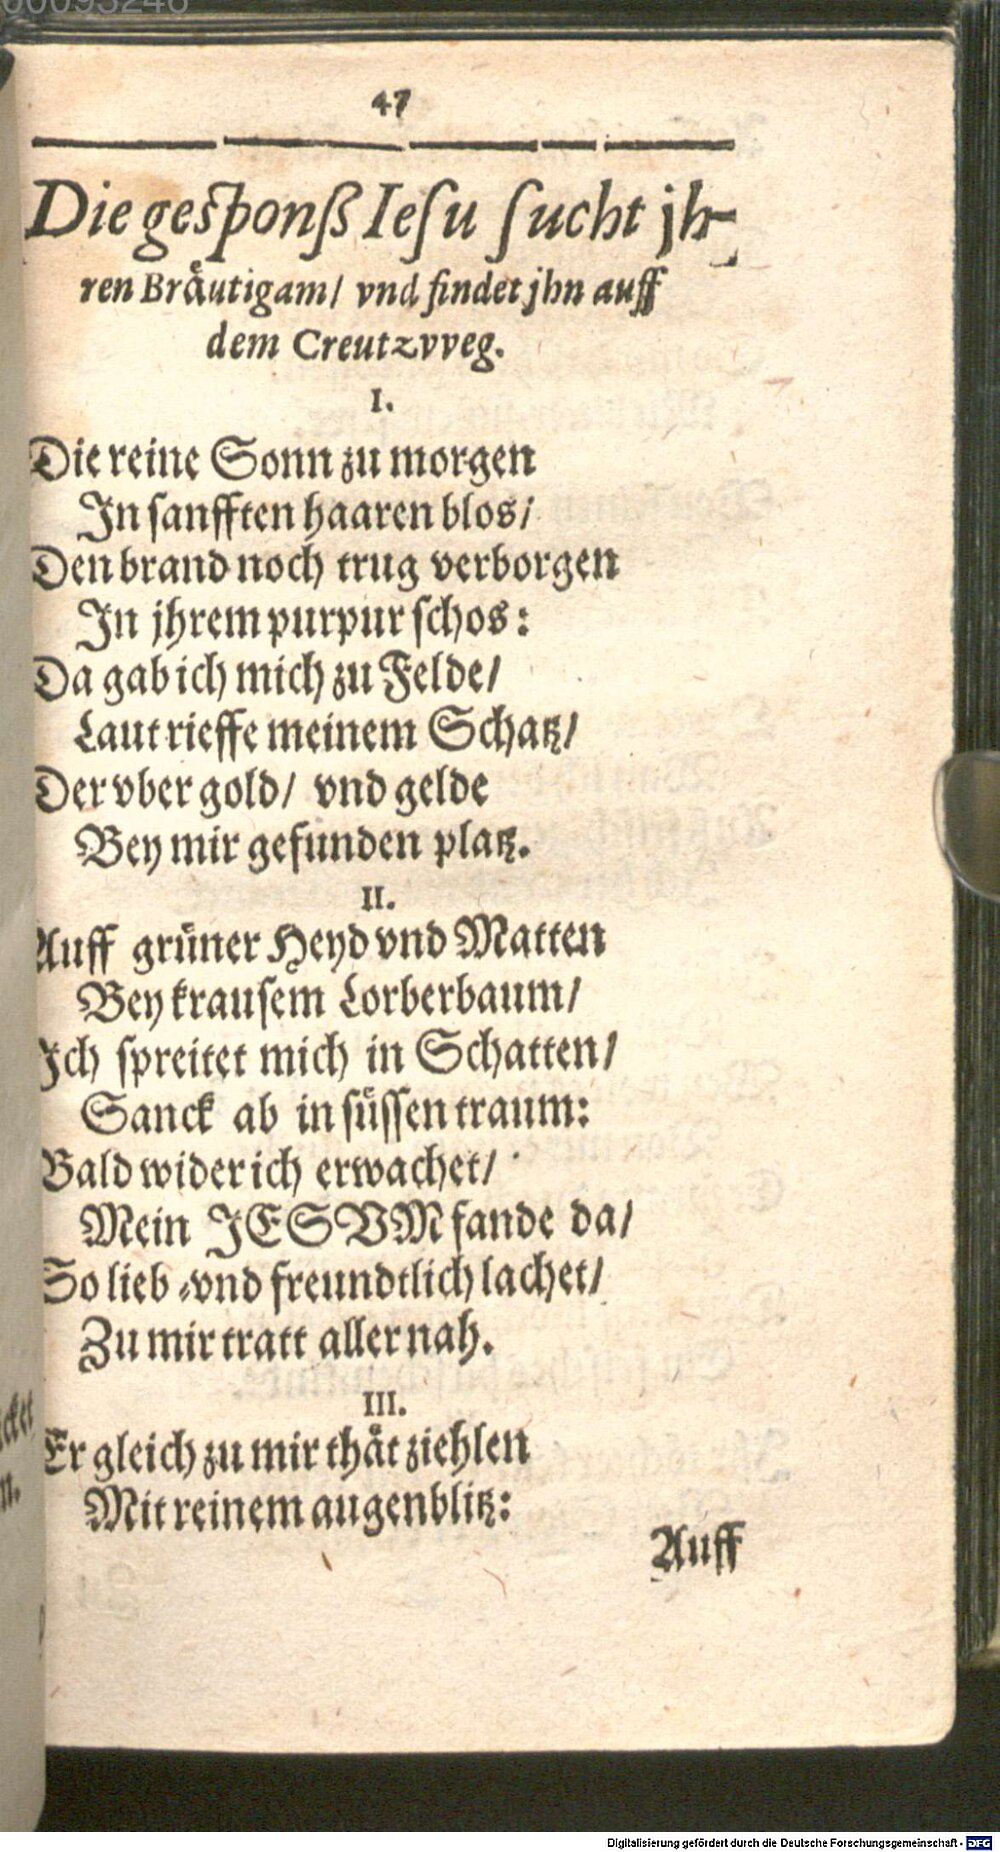 00093248
47
Die gesponß Ieſu ſucht jh-
ren Braͤutigam/ vnd findet jhn auff
dem Creutzvveg.
I.
Die reine Sonn zu morgen
In ſanfften haaren blos/
Den brand noch trug verborgen
In jhrem purpur ſchos:
Da gab ich mich zu Felde/
Laut rieffe meinem Schatz/
Der vber gold/ vnd gelde
Bey mir gefunden platz.
II.
Auff gruͤner Heyd vnd Matten
Bey krauſem Lorberbaum/
Ich ſpreitet mich in Schatten/
Sanck ab in ſuͤſſen traum:
Bald wider ich erwachet/
Mein JESVM fande da/
So lieb-vnd freundtlich lachet/
Zu mir tratt aller nah.
III.
Er gleich zu mir thaͤt ziehlen
Mit reinem augenblitz:
Auff
Digitalisierung gefördert durch die Deutsche Forschungsgemeinschaft - DFG